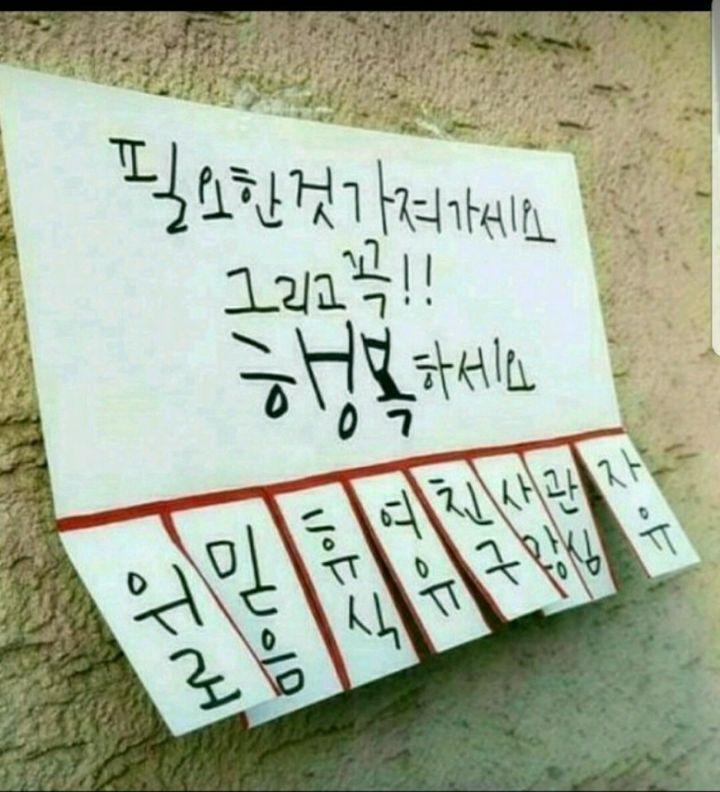 필요한것 가져가세요
그리고 꼭!!
행복하세요
위로
믿음
휴식
여유
친구
사랑
관심
자유